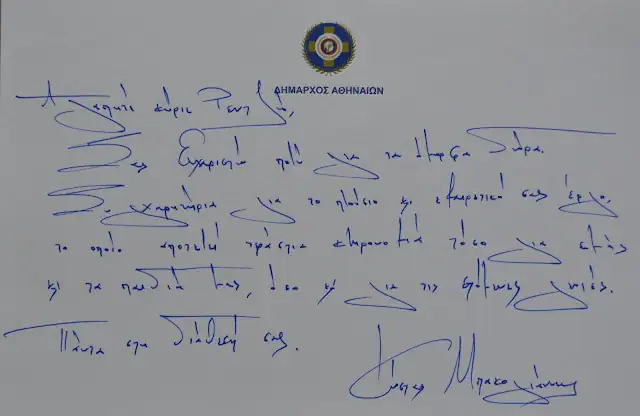 ΔΗΜΑΡΧΟΣ ΑΘΗΝΑΙΩΝ
Αγαπητέ κύριε
Σας Ευχαριστώ πολύ για τα όμορφα δώρα.
Συγχαρητήρια για το πλούσιο κι εξαιρετικό σας έργο,
το οποίο αποτελεί τεράστια κληρονομιά τόσο για εμάς
κι τα παιδιά μας, όσο κι για τις επόμενες γενιές.
Πάντα στη διάθεσή σας.
Κώστας Μπακογιάννης